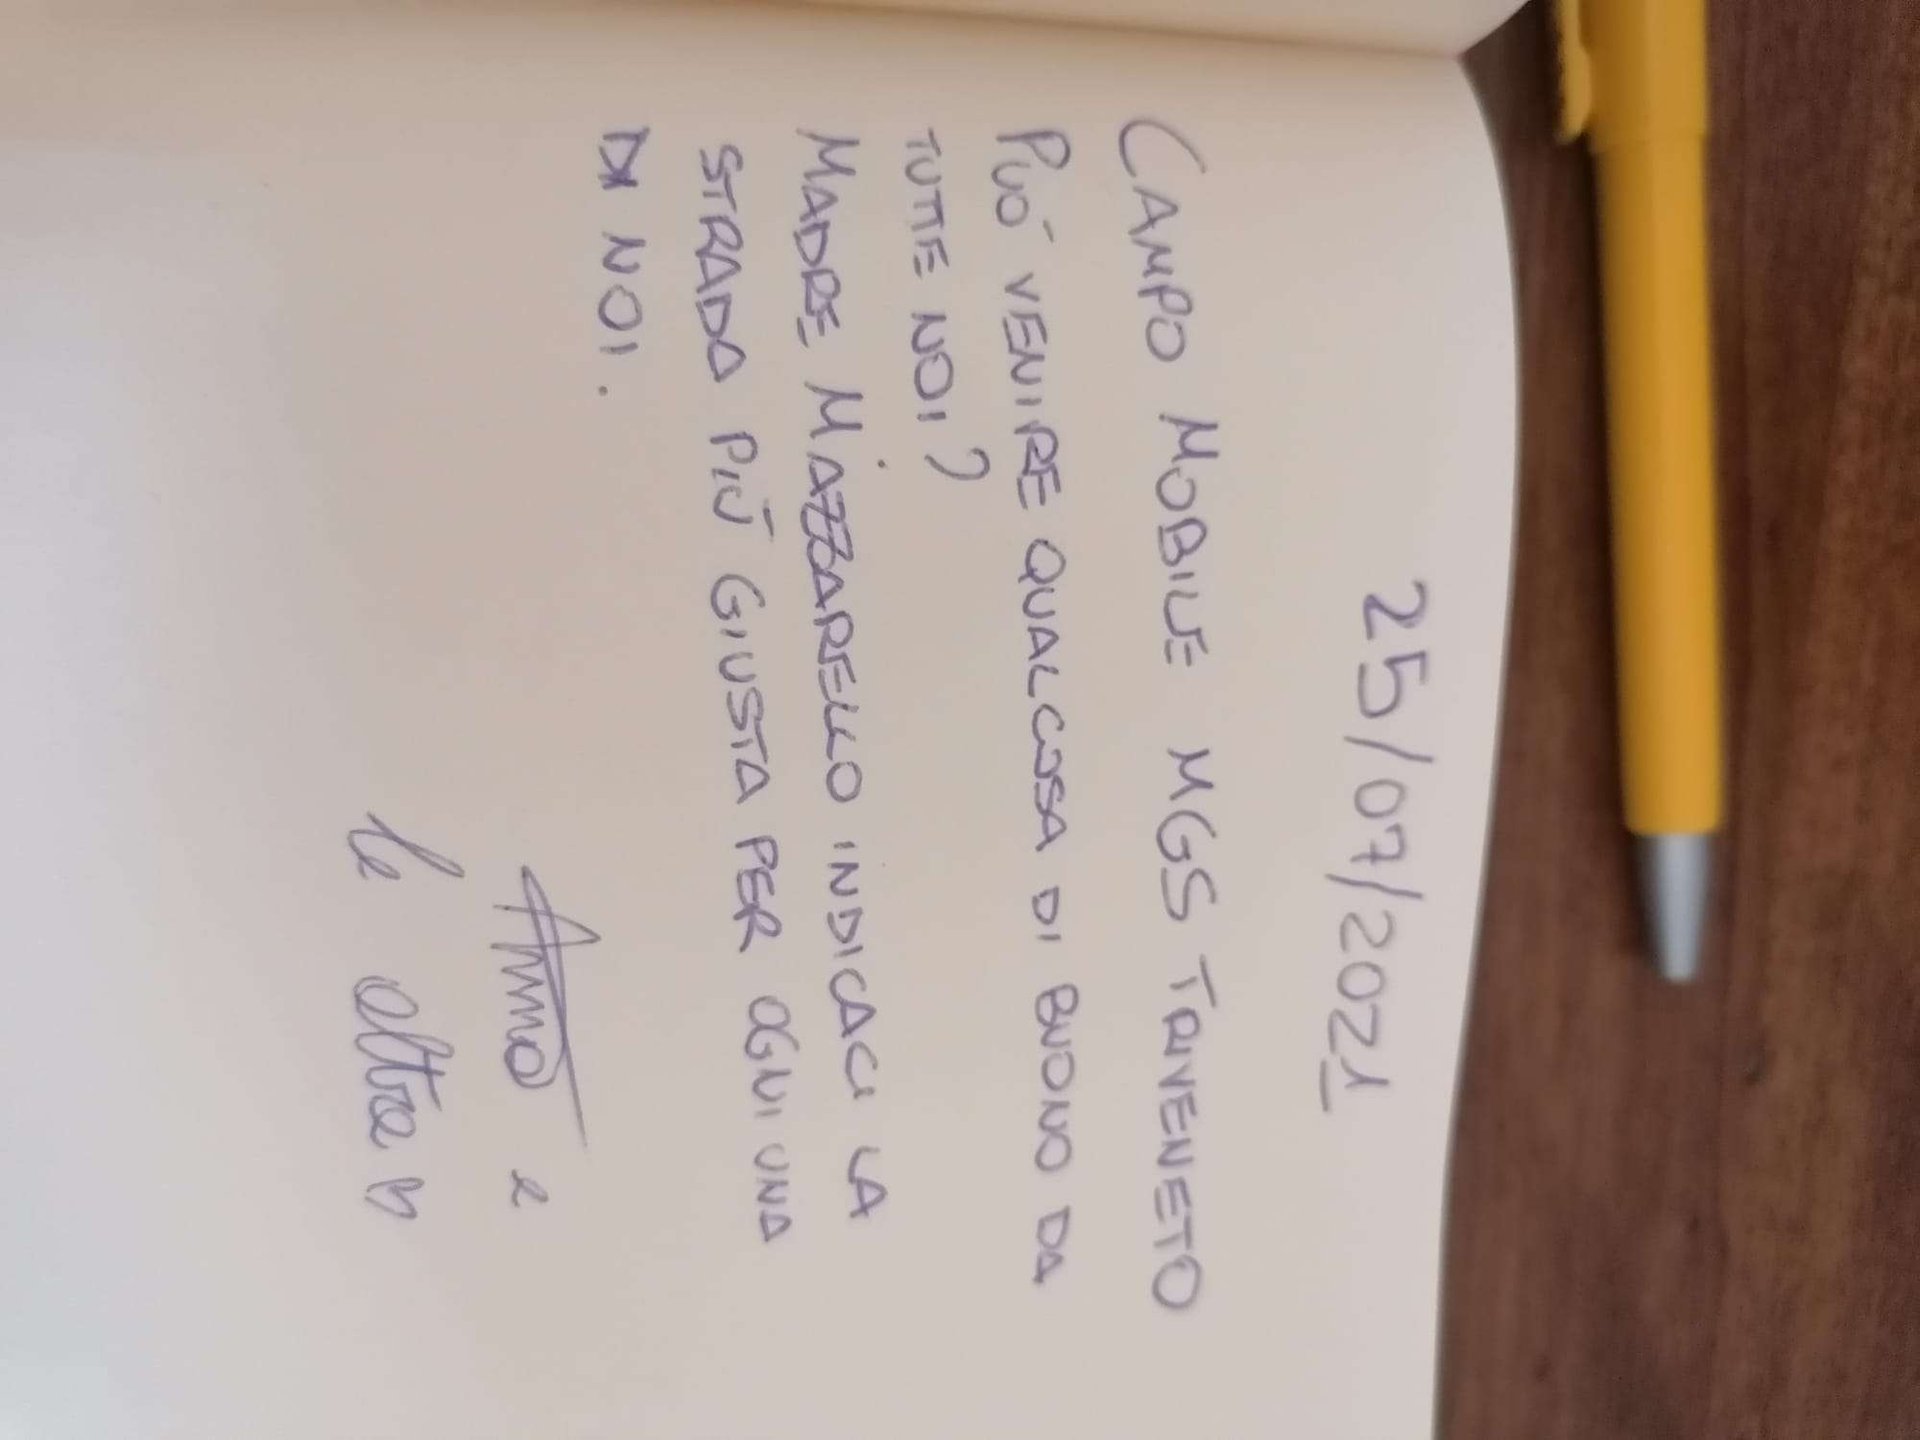 25/07/2021
CAMPO MOBILE MGS TRIVENETO
PUÓ VENIRE QUALCOSA DI BUONO DA
TUTTE NOI?
MADRE MAZZARELLO INDICACI LA
STRADA PIÙ GIUSTA PER OGNI UNA
DI NOI.
e
le altre